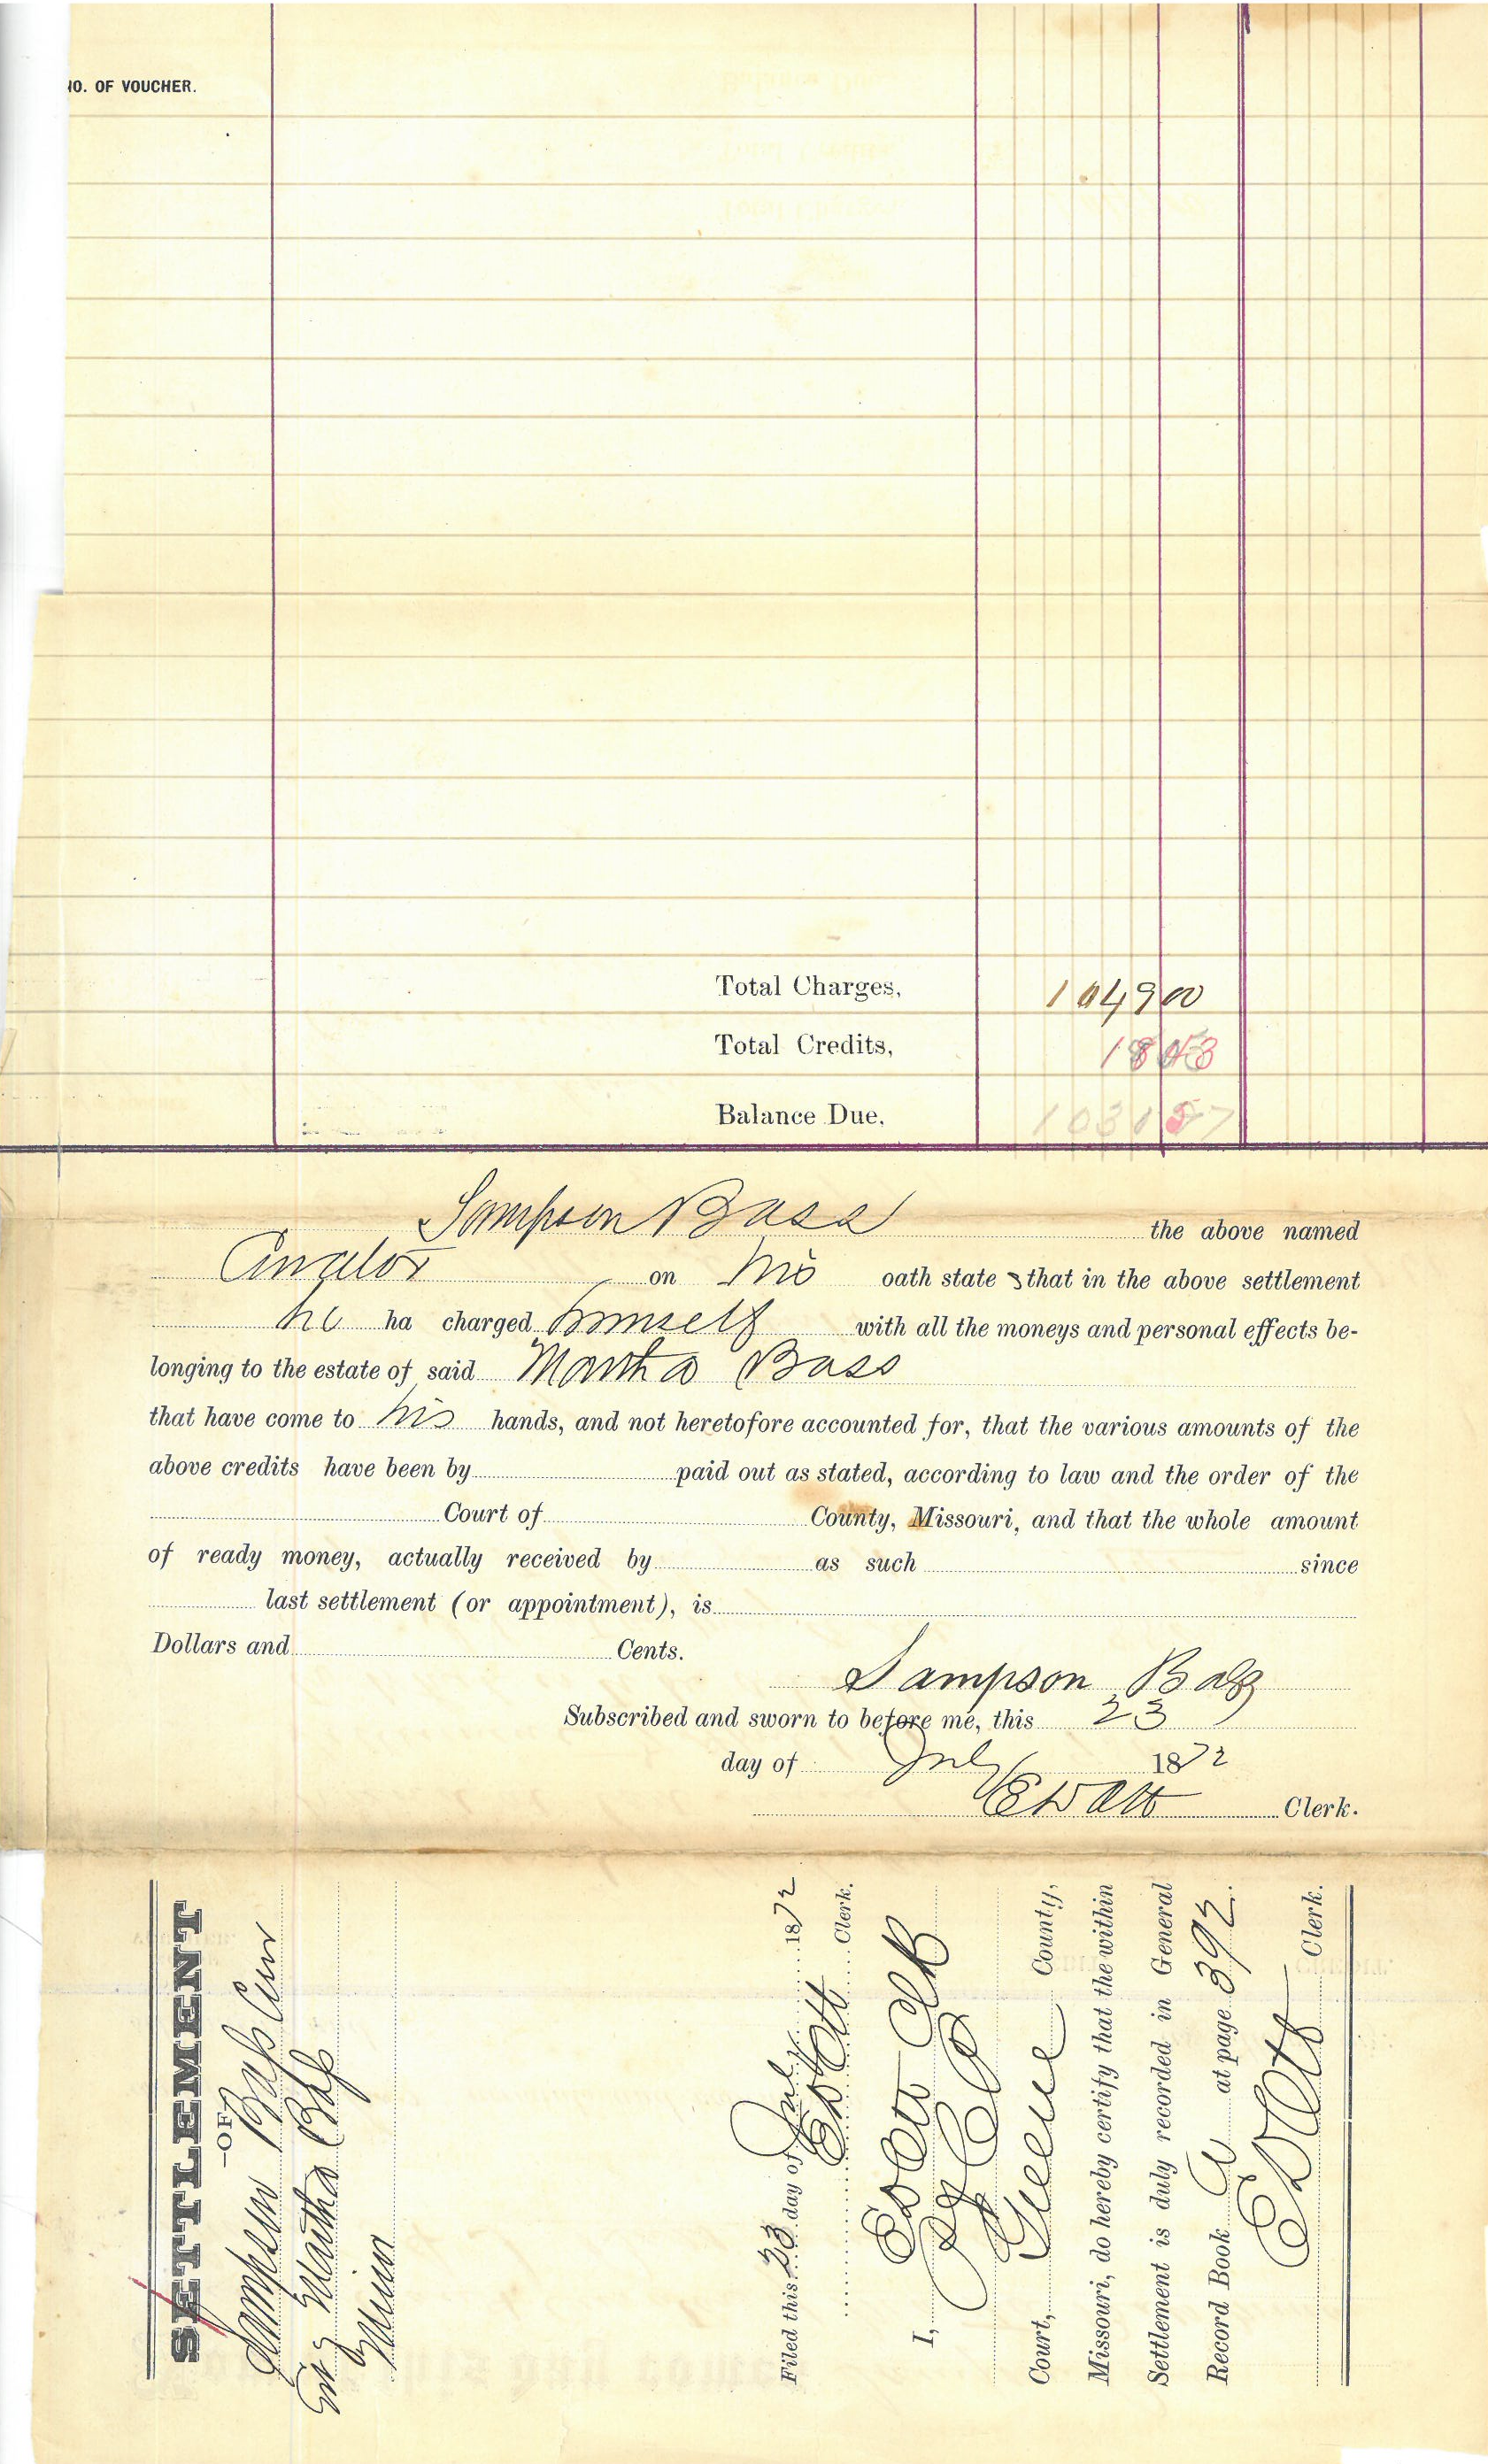 NO. OF VOUCHER.
Total Charges, 1049 00
Total Credits, 18 43
Balance Due, 1030 57
Sampson Bass the above named
Curator on his oath states that in the above settlement
he ha charged himself with all the moneys and personal effects be-
longing to the estate of said Martha Bass
that have come to his hands, and not heretofore accounted for, that the various amounts of the
above credits have been by paid out as stated, according to law and the order of the
Court of County, Missouri, and that the whole amount
of ready money, actually received by as such since
last settlement (or appointment), is
Dollars and Cents.
Sampson Bass
Subscribed and sworn to before me, this 23
day of July 1872
Clerk.
SETTLEMENT
—OF—
Sampson Bass Cur
Martha Bass
Minor
Filed this 23 day of July 1872
Clerk.
I,
Court, Greene County,
Missouri, do hereby certify that the within
Settlement is duly recorded in General
Record Book at page 392.
Clerk.